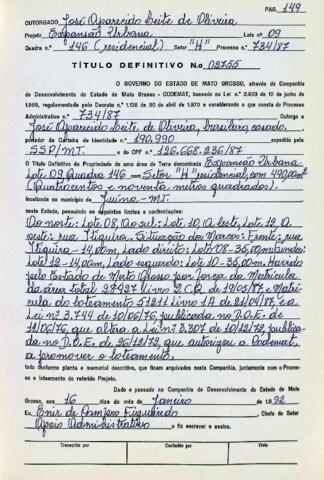 PAG. 149
OUTORGADO José Aparecido Leite de Oliveira
Projeto Expansão Urbana Lote nº 09
Quadra nº 146 (residencial) Setor "H" Processo nº 734/87
TÍTULO DEFINITIVO No 02755
O GOVERNO DO ESTADO DE MATO GROSSO, através da Companhia
de Desenvolvimento do Estado de Mato Grosso - CODEMAT, baseado na Lei n.° 2.929 de 13 de junho de
1.969, regulamentada pelo Decreto n.° 1.138 de 30 de abril de 1.970 e considerando o que consta do Processo
Administrativo n.° 734/87 Outorga a
José Aparecido Leite de Oliveira, brasileiro, casado,
portador da Carteira de Identidade n.° 190.990 expedida pela
SSP/MT. e do CPF n.° 126.668.236/87
O Título Definitivo de Propriedade de uma área de Terra denominada Expansão Urbana-
Lote 09, Quadra 146 com Setor "H" residencial, com 490,00m²
(Quatrocentos e noventa metros quadrados).
localizada no município de Juina-MT.
neste Estado, possuindo os seguintes limites e confrontações:
Ao norte: Lote 08, Ao sul: Lote 10, Ao leste, Lote 12, O
este: rua Itiquira. Situação dos Marcos: Frente: rua
Itiquira-14,00m, Lado direito: Lote 08-35,00m, Fundos:
Lote 12-14,00m, Lado esquerdo: Lote 10-35,00m. Havido
pelo Estado de Mato Grosso por força da Matrícula
da área total 27427 Livro 2 C.R. de 19/05/87, e Matrí-
cula do loteamento 51211 Livro 1A de 21/04/87 e a
Lei nº 3.744 de 10/06/76, publicada no D.O.E. de
11/06/76, que altera a Lei nº 3.307 de 10/12/72, publica-
da no D.O.E. de 26/12/72, que autorizou a Codemat,
a promover o loteamento.
tudo conforme planta e memorial descritivo, que ficam arquivados nesta Companhia, juntamente com o Proces-
so e loteamento do referido Projeto.
Dado e passado na Companhia de Desenvolvimento do Estado de Mato
Grosso, aos 16 dias do mês de Janeiro de 1.992
Eu, Enir de Campos Figueiredo Chefe do Setor
Apoio Administrativo o fiz escrever e assino.
Transcrito por Conferido por Visto